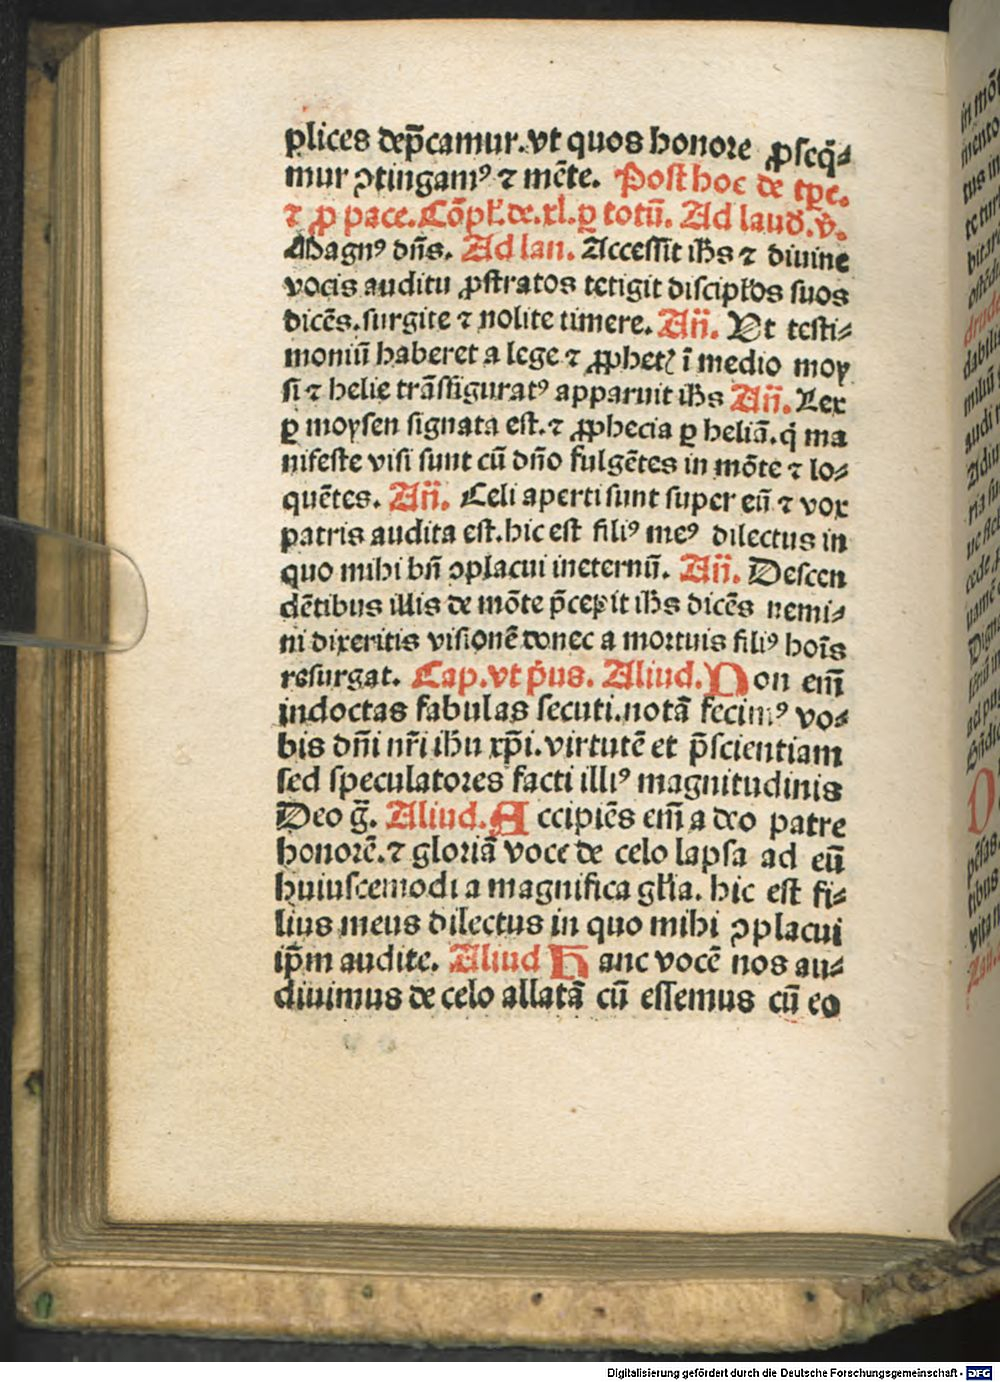 plices dep̄camur.vt quos honore ꝓseq̄⸗
mur ↄtingamꝰ ⁊ mēte. Post hoc de tꝑe.
⁊ ꝓ pace. Cōpl'. de. xl. ꝑ totū. Ad laud'. v̄.
Magnꝰ dn̄s. Ad lau. Accessit ih̄s ⁊ divine
vocis auditu ꝓstratos tetigit discipl'os suos
dicēs.surgite ⁊ nolite timere. An̄. Vt testi⸗
moniū haberet a lege ⁊ ꝓphetꝫ ī medio moy
si ⁊ helie trāsfiguratꝰ apparuit ih̄s An̄. Lex
ꝑ moysen signata est.⁊ ꝓphecia ꝑ heliā.q̇ ma
nifeste visi sunt cū dn̄o fulgētes in mōte ⁊ lo⸗
quētes. An̄. Celi aperti sunt super eū ⁊ vox
patris audita est.hic est filiꝰ meꝰ dilectus in
quo mihi bn̄ ↄplacui ineternū. An̄. Descen
dētibus illis de mōte p̄cepit ih̄s dicēs nemi⸗
ni dixeritis visionē donec a mortuis filiꝰ hoīs
resurgat. Cap.vt p̄us. Aliud. Non em̄
indoctas fabulas secuti.notā fecimꝰ vo⸗
bis dn̄i nr̄i ih̄u xp̄i.virtutē et p̄scientiam
sed speculatores facti illiꝰ magnitudinis
Deo ḡ. Aliud. Accipiēs em̄ a deo patre
honorē.⁊ gloriā voce de celo lapsa ad eū
huiuscemodi a magnifica gl'ia. hic est fi⸗
lius meus dilectus in quo mihi ↄplacui
ip̄m audite. Aliud Hanc vocē nos au⸗
divimus de celo allatā cū essemus cū eo
Digitalisierung gefördert durch die Deutsche Forschungsgemeinschaft - DFG